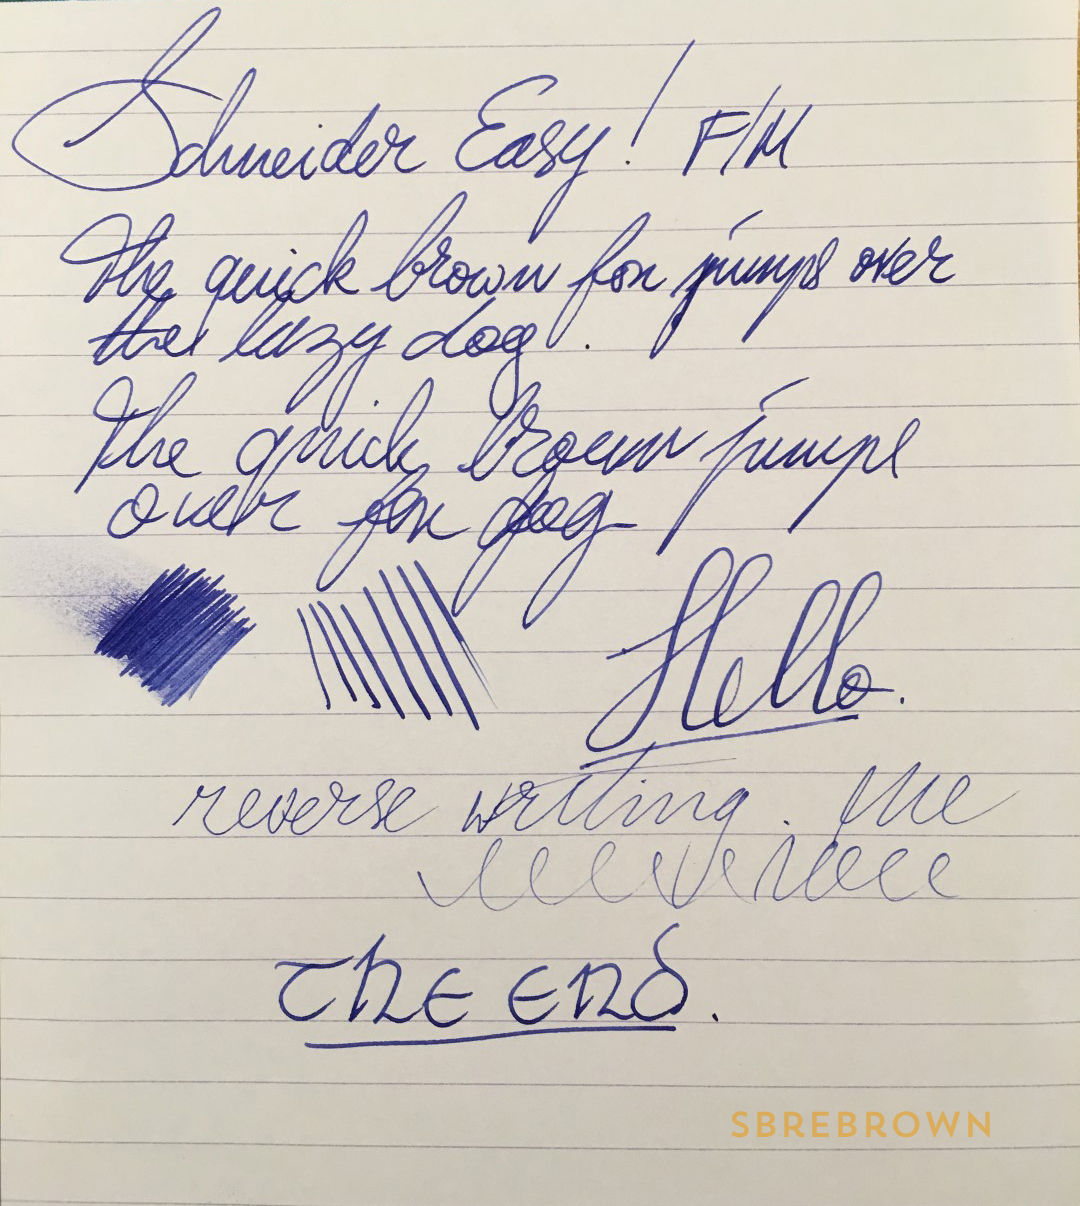 Schneider Easy! F/M
The quick brown fox jumps over
the lazy dog.
The quick brown jumps
over fox dog
Hello.
reverse writing. the
The End.
SBREBROWN